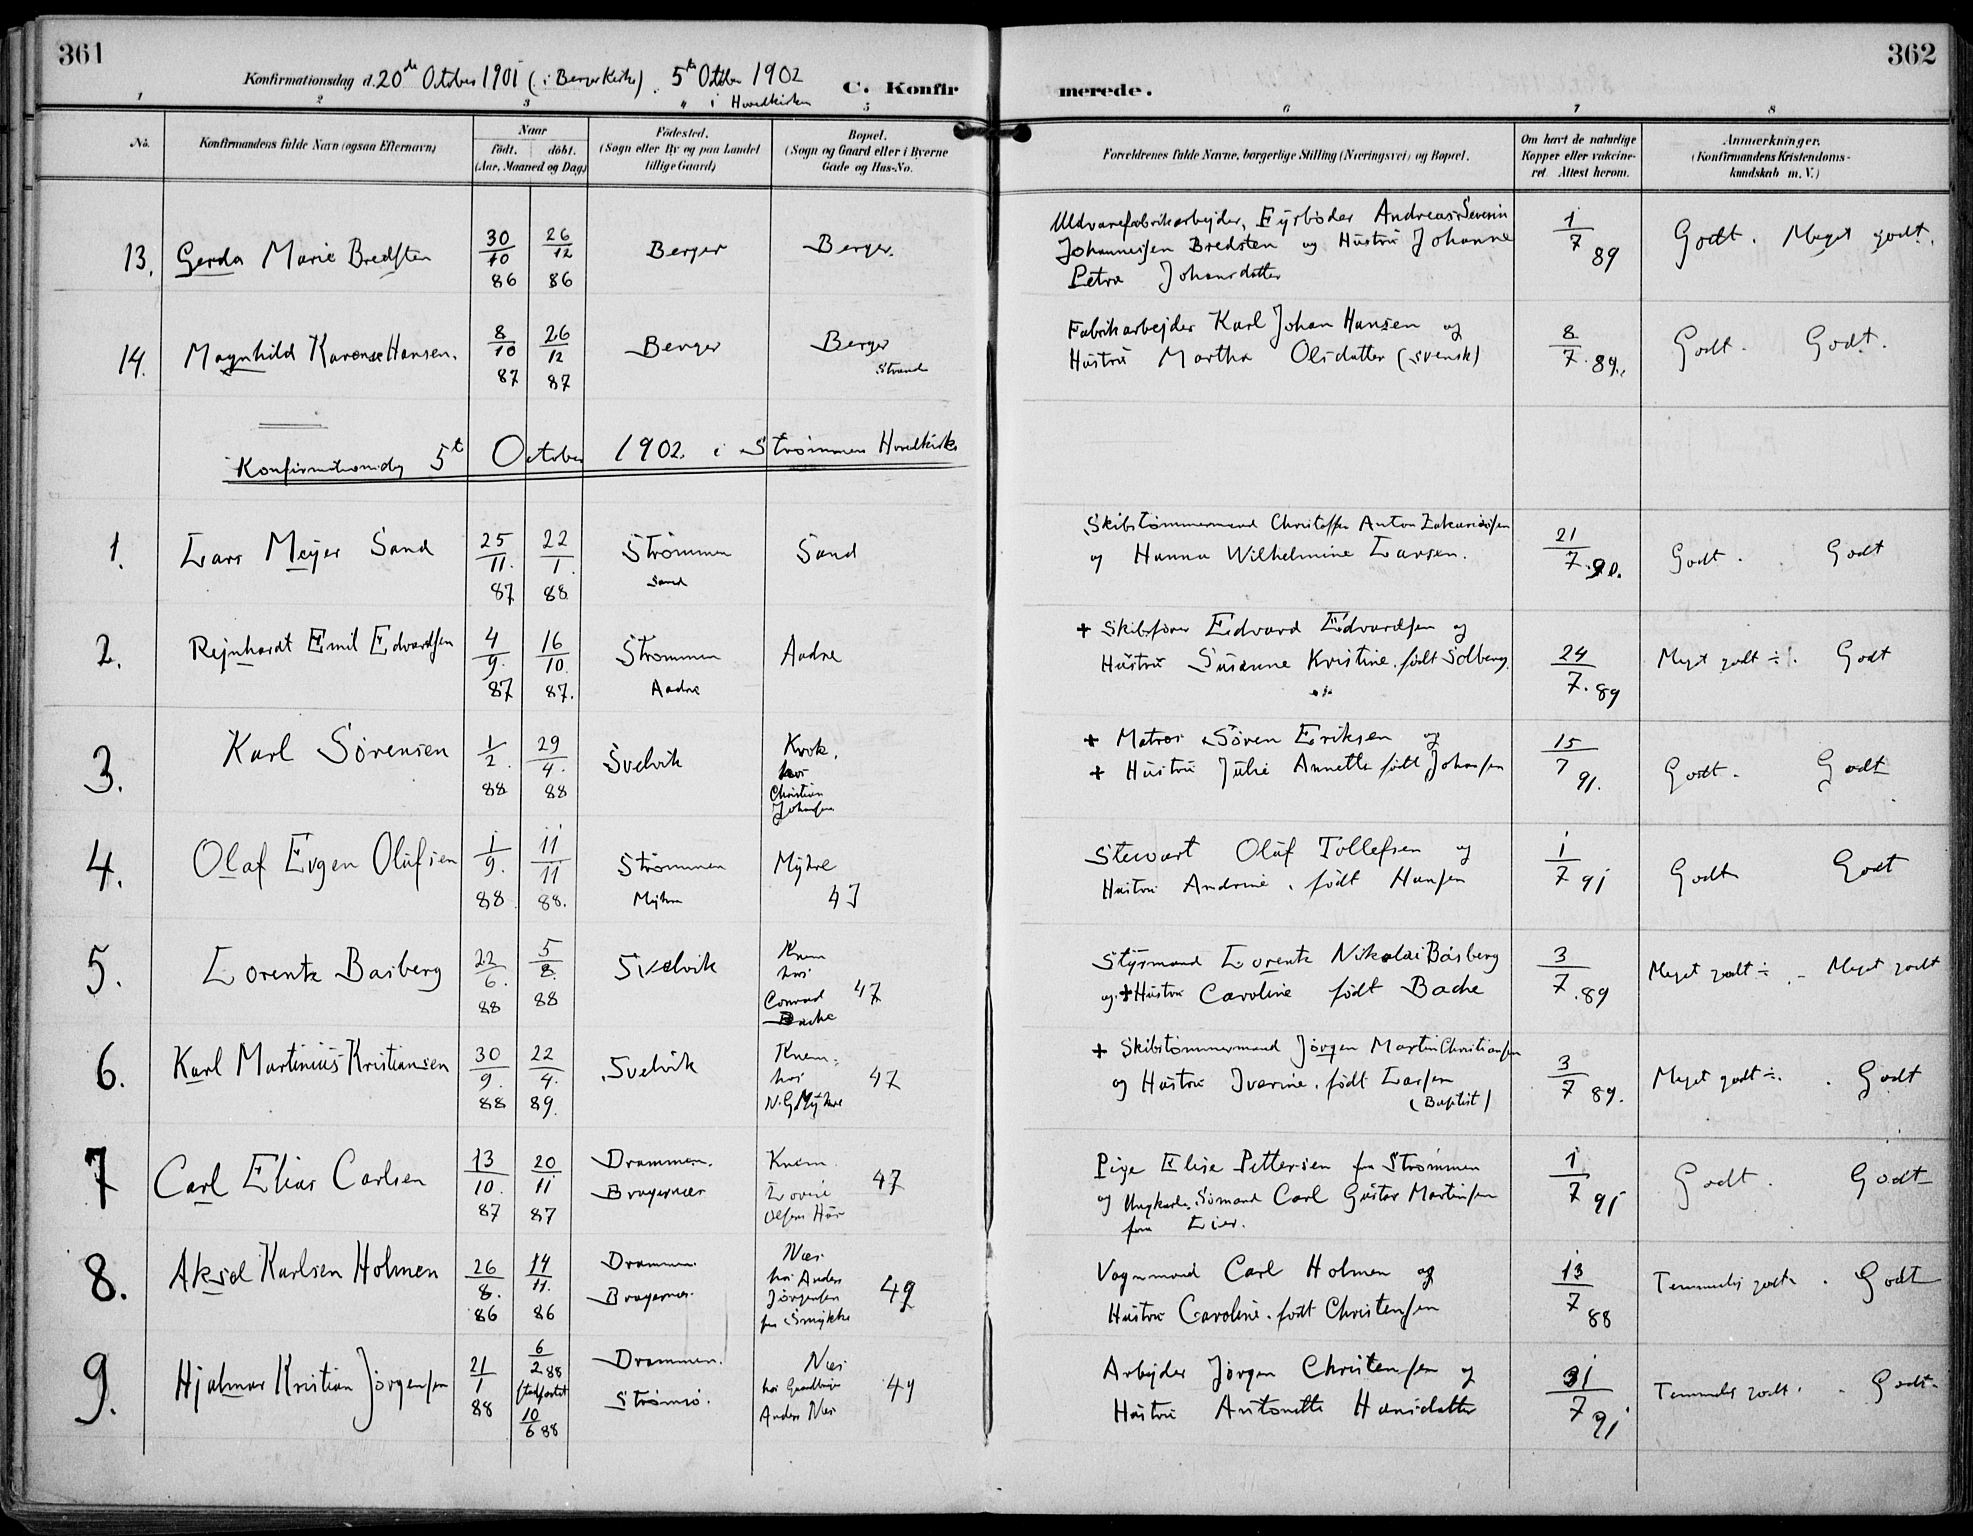 361
362
Konfirmationsdag d. 20de October 1901 (i Berger Kirke). 5te October 1902
" i Hovedkirken
C. Konfirmerede.
1 2 3 5 6 7 8
No.
Konfirmandens fulde Navn (ogsaa Efternavn)
Naar
født. døbt.
(Aar, Maaned og Dag)
Fødested.
(Sogn eller By og paa Landet
tillige Gaard)
Bopæl.
(Sogn og Gaard eller i Byerne
Gade og Hus-No.
Forældrenes fulde Navne, borgerlige Stilling (Næringsvei) og Bopæl.
Om havt de naturlige
Kopper eller vakcine-
ret. Attest herom.
Anmærkninger.
(Konfirmandens Kristendoms-
kundskab m. V.)
13. Gerda Marie Bredsten 30/10 86 26/12 86 Berger Berger.
Uldvarefabrikarbejder, Fyrbøder Andreas Severin
Johannessen Bredsten og Hustru Johanne
Petra Johansdatter
1/7 89 Godt. Meget godt.
14. Magnhild Karense Hansen. 8/10 87 26/12 87 Berger Berger
Strand
Fabrikarbejder Karl Johan Hansen og
Hustru Martha Olsdatter (svensk)
8/7. 89. Godt. Godt.
Konfirmationsdag 5t October 1902. i Strømmen Hovedkirke
1. Lars Mejer Sand 25/11. 87 22/1. 88 Strømmen
Sand
Sand
Skibstømmermand Christoffer Anton Zakariassen
og Hanna Wilhelmine Larsen.
21/7. 90. Godt. Godt
2. Rejnhardt Emil Edvardsen 4/9. 87 16/10. 87. Strømmen
Aadne
Aadne
+ Skibsfører Edvard Edvardsen og
Hustru Susanne Kristine. født Solberg.
24/7. 89 Meget godt ÷. Godt
3. Karl Sörensen 1/2. 88 29/4. 88 Svelvik
Krok.
hos
Christian
Johansen
+ Matros Søren Eriksen og
+ Hustru Julie Annette født Johansen
15/7 91. Godt. Godt
4. Olaf Evgen Olufsen 1/9. 88 11/11 88. Strømmen
Myhre
Myhre
47
Stewart Oluf Tollefsen og
Hustru Andrine. født Hansen
1/7 91 Godt Godt
5. Lorentz Basberg 22/6. 88 5/8. 88 Svelvik
Knem
hos
Conrad 47
Bache
Styrmand Lorentz Nikolai Basberg
og + Hustru Caroline født Bache
3/7. 89 Meget godt ÷. Meget godt
6. Karl Martinius Kristiansen 30/9. 88 22/4. 89. Svelvik
Knem.
hos 47
N. G Myhre
+ Skibstømmermand Jörgen Martin Christiansen
og Hustru Iverine. født Larsen
(Baptist)
3/7 89. Meget godt ÷. Godt
7 Carl Elias Carlsen 13/10. 87 20/11 87 Drammen.
Bragernæs
Knem.
Lovise 47
Olsens Hus
Pige Elise Pettersen fra Strømmen
og Ungkarl. Sömand Carl Gustav Martinsen
fra Lier.
1/7 91 Godt. Godt
8. Aksel Karlsen Holmen 26/8. 86 14/11. 86 Drammen.
Bragernæs.
Næs.
hos Anders
Jørgensen 49
Vognmand Carl Holmen og
Hustru Caroline. født Christensen
13/7 88 Temmelig godt. Godt
9. Hjalmar Kristian Jörgensen 21/1 88 6/2 88
stadfæstet
10/6 88
Drammen.
Strømsø.
Næs
hos Gaardbruger 49
Anders Næs
Arbejder Jörgen Christensen og
Hustru Antonette Hansdatter
31/7 91 Temmelig godt. Godt.